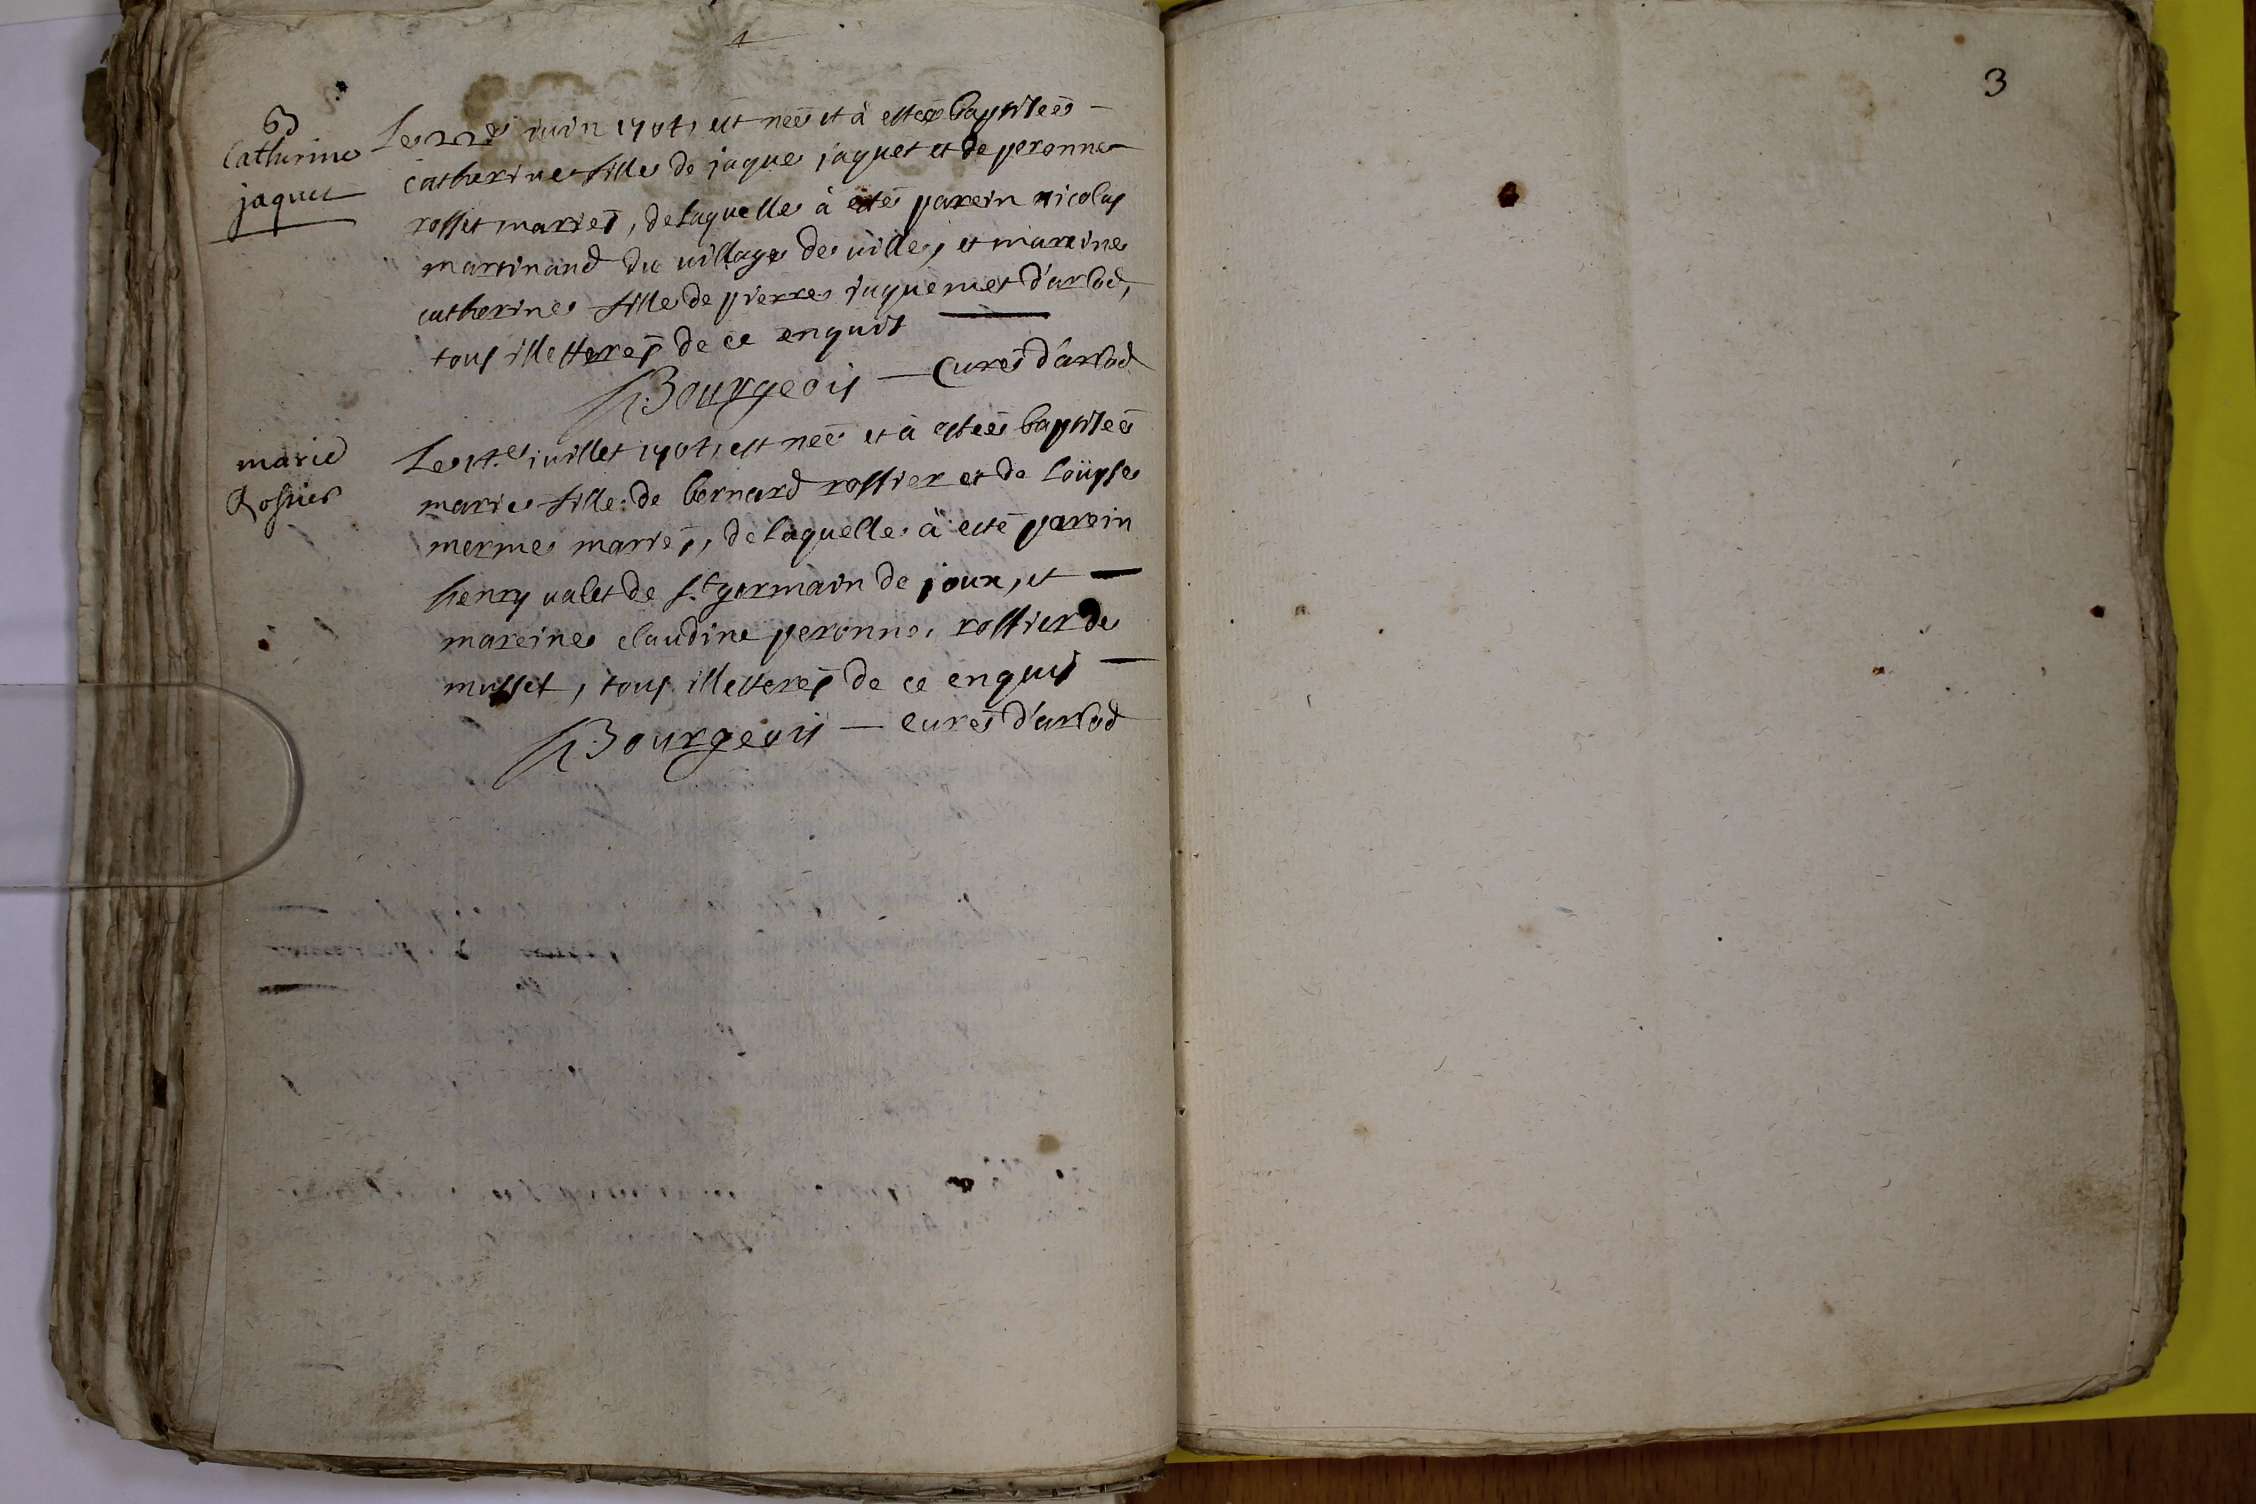 Catherine
jaquet
Le 22e iuin 1704, est neē et à esteē baptiseē
catherine fille de jaque jaquet et de peronne
rosset mariēs, de laquelle à estē parein nicolas
martinand du village de ville, et mareine
catherine fille de pierre jaquemet d'arlod,
tous illetterēs de ce enquis
Bourgeois — Curē d'arlod
marie
Rossier
Le 14.e iuillet 1704, est neē et à esteē baptiseē
marie fille de bernard rossier et de loüyse
merme mariēs, de laquelle à estē parein
henry valet de st germain de joux, et
mareine claudine peronne rossier de
musset, tous illetterēs de ce enquis
Bourgeois — curē d'arlod
3